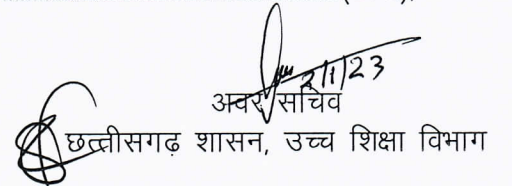 2/1/23
अवर सचिव
छत्तीसगढ़ शासन, उच्च शिक्षा विभाग